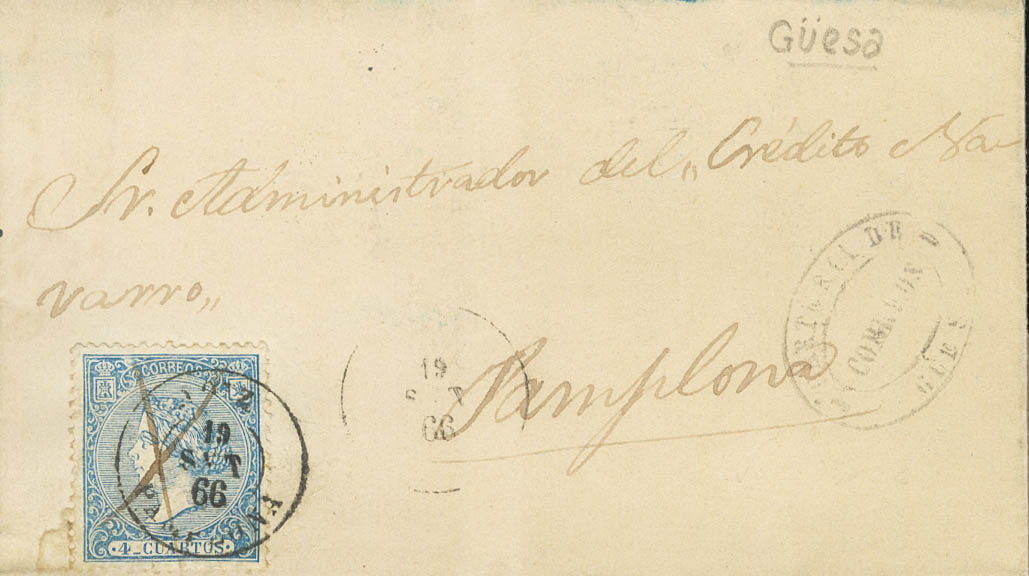 Güesa
Sr. Administrador del „Crédito Na-
varro„
Pamplona
CORREOS
4_CUARTOS
19
SET
66
PAMPLONA
19
66
CARTERIA DE
CORREOS D
GUES